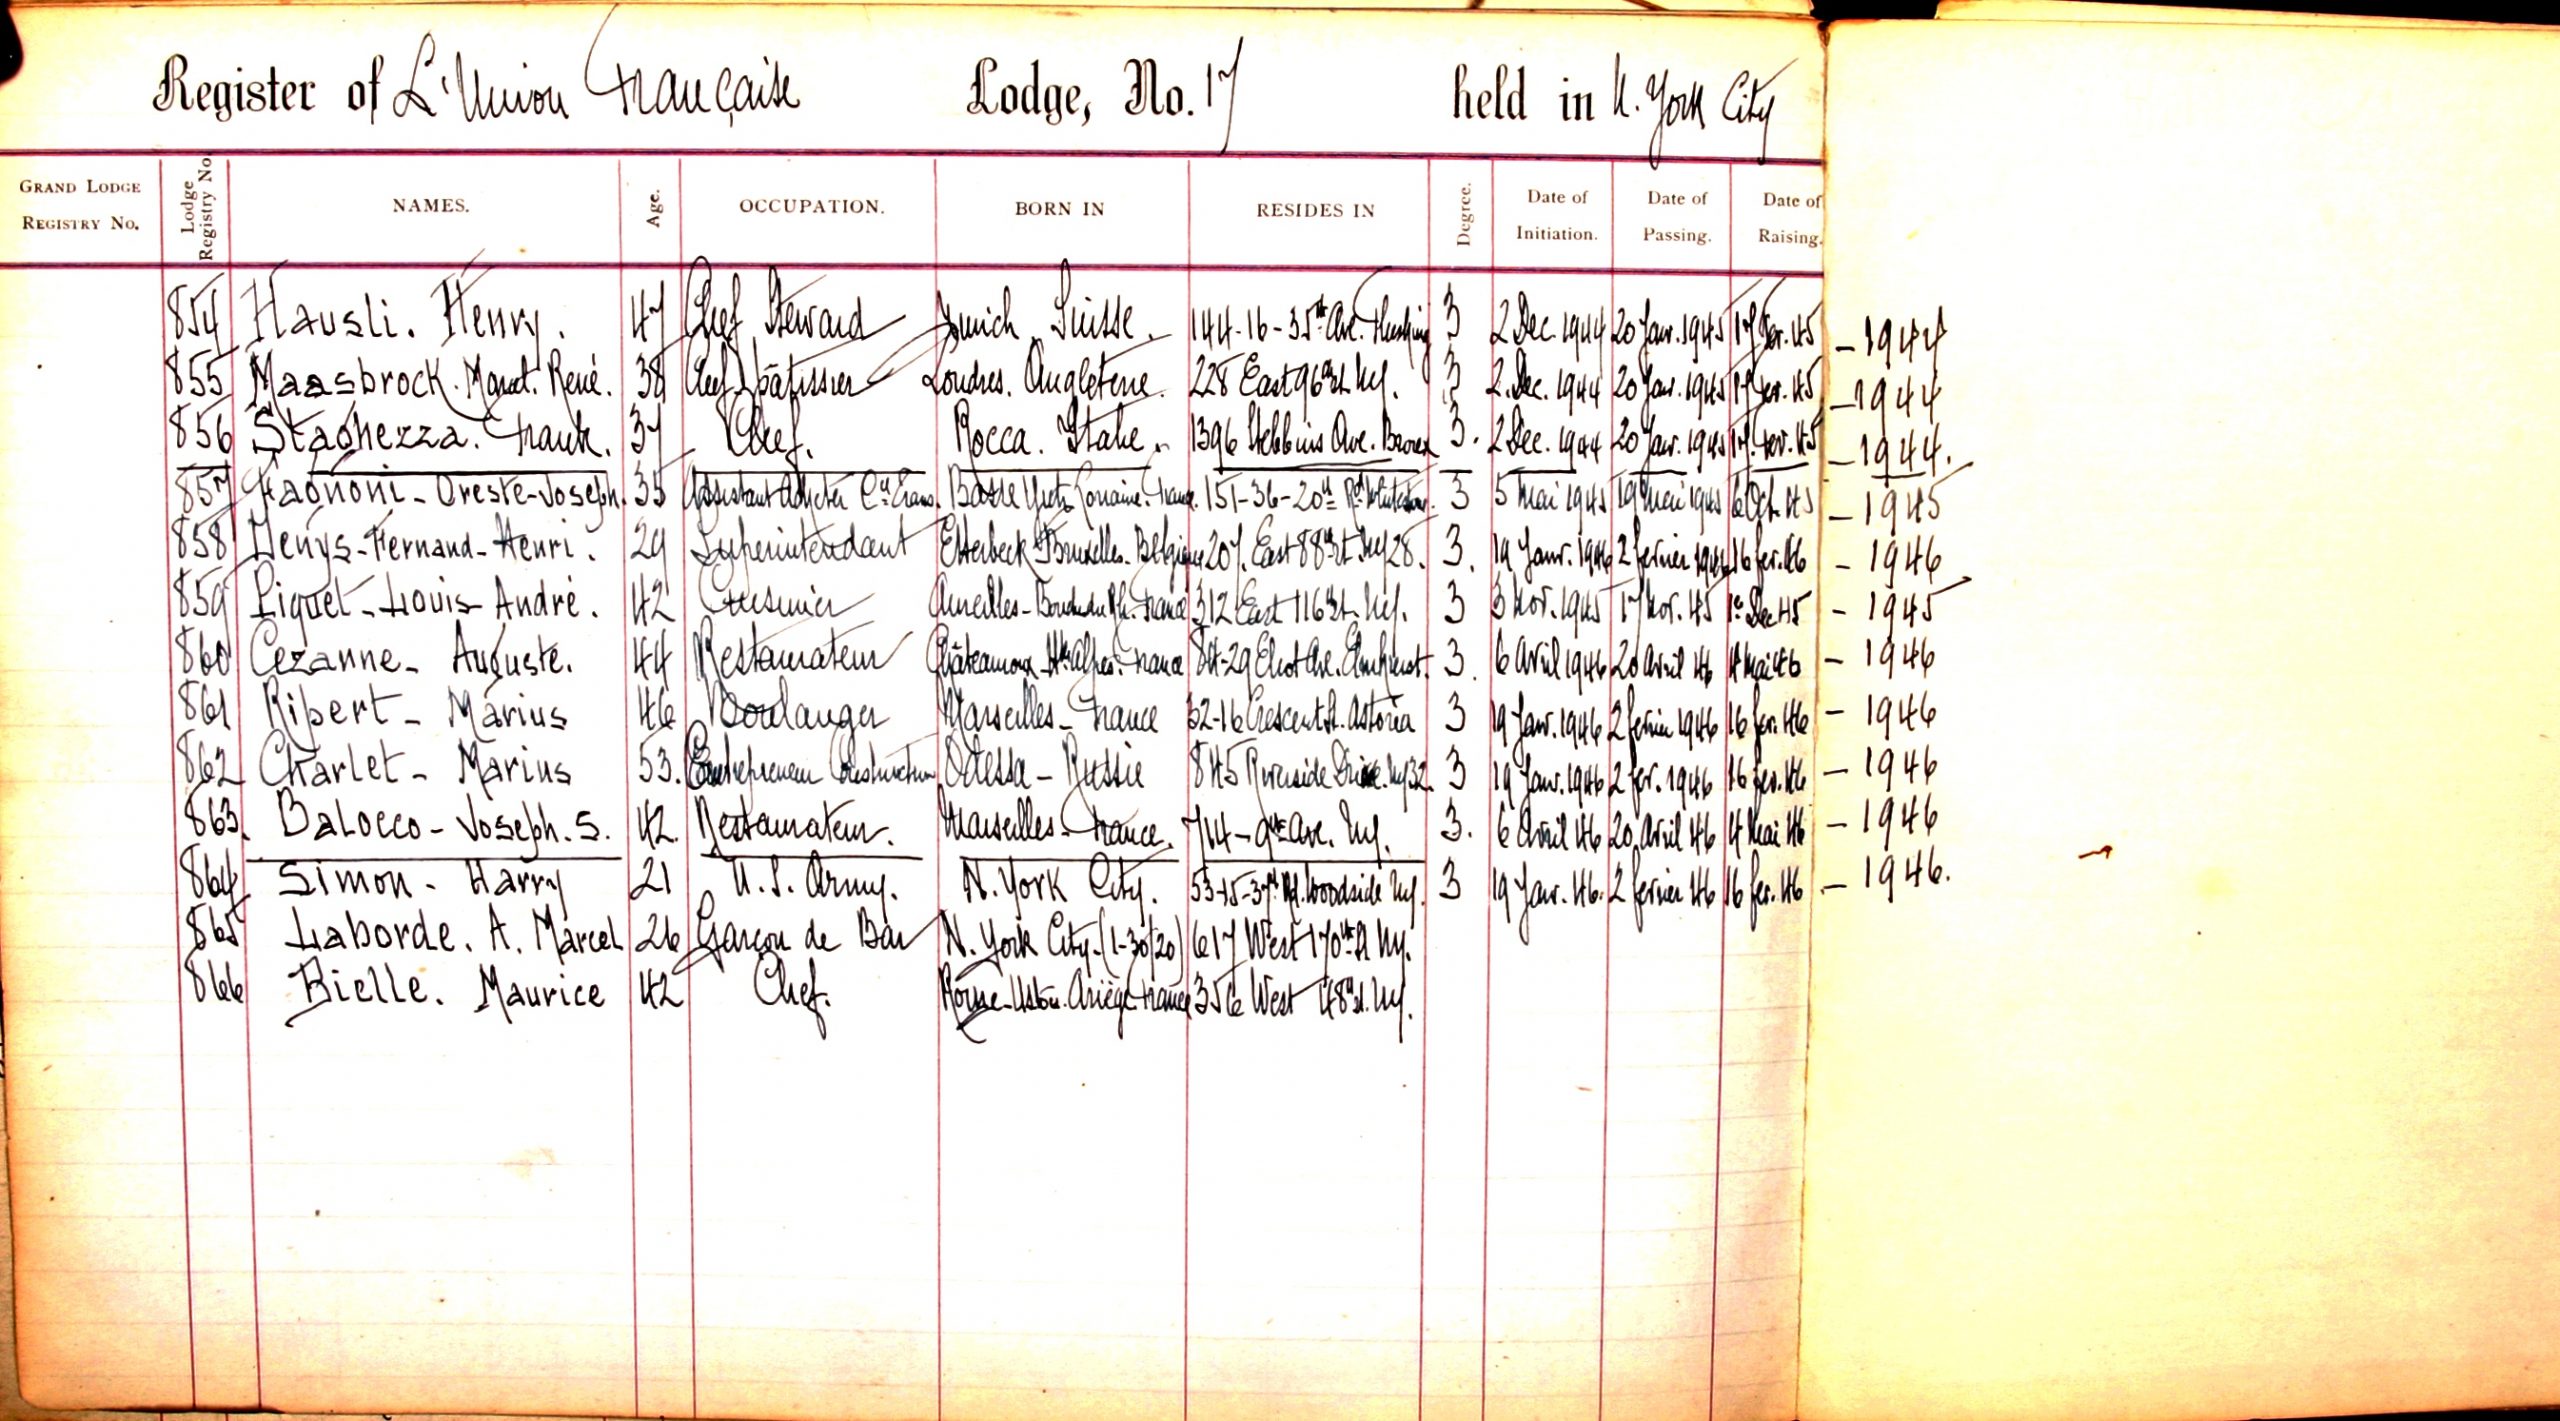 Register of L'Union Française Lodge, No. 17 held in N. York City
GRAND LODGE REGISTRY NO. Lodge Registry No. NAMES. Age. OCCUPATION. BORN IN RESIDES IN Degree. Date of Initiation. Date of Passing. Date of Raising.
854 Hausli. Henry. 47 Chef Steward Zurich. Suisse. 144-16-35th Ave. Flushing 3 2 Dec. 1944 20 Janv. 1945 17 Fev. 45 - 1944
855 Maasbrock. Marcel. René. 38 Chef Pâtissier Londres. Angleterre. 228 East 96 St. NY. 3 2. Dec. 1944 20 Janv. 1945 17 Fev. 45 - 1944
856 Staghezza. Frank. 37 Chef. Rocca. Italie. 1396 Stebbins Ave. Bronx 3. 2 Dec. 1944 20 Janv. 1945 17. Fev. 45 - 1944.
857 Fagnoni - Oreste-Joseph. 35 Assistant Basse Yutz Lorraine. France. 151-36-20th Rd. Whitestone. 3 5 Mai 1945 19 Mai 1945 6 Oct. 45 - 1945
858 Denys-Fernand-Henri. 29 Superintendant Etterbeek Bruxelles. Belgique 207. East 88 St. NY 28. 3. 19 Janv. 1946 2 fevrier 1946 16 fev. 46 - 1946
859 Piquet-Louis-André. 42 Cuisinier Aureilles-Bouches du Rh. France 312 East 116 St. NY. 3 3 Nov. 1945 17 Nov. 45 1er Dec 45 - 1945
860 Cezanne - Auguste. 44 Restaurateur Châteauroux Htes Alpes. France 84-29 Eliot Ave. Elmhurst. 3. 6 Avril 1946 20 Avril 46 4 Mai 46 - 1946
861 Ripert - Marius 46 Boulanger Marseilles - France 32-16 Crescent St. Astoria 3 19 Janv. 1946 2 fevrier 1946 16 fev. 46 - 1946
862 Charlet - Marius 53. Entrepreneur Construction Odessa - Russie 845 Riverside Drive. NY 32. 3 19 Janv. 1946 2 fev. 1946 16 fev. 46 - 1946
863. Balocco - Joseph. S. 42. Restaurateur. Marseilles - France. 714 - 9th Ave. NY. 3. 6 Avril 46 20 Avril 46 4 Mai 46 - 1946
864 Simon - Harry 21 U.S. Army. N. York City. 53-15-37th Rd. Woodside NY. 3 19 Janv. 46. 2 fevrier 46 16 fev. 46 - 1946.
865 Laborde. A. Marcel 26 Garçon de Bar N. York City. (1-30/20) 617 West 170th St NY.
866 Bielle. Maurice 42 Chef. Ustou. Ariège France 356 West 48 St. NY.